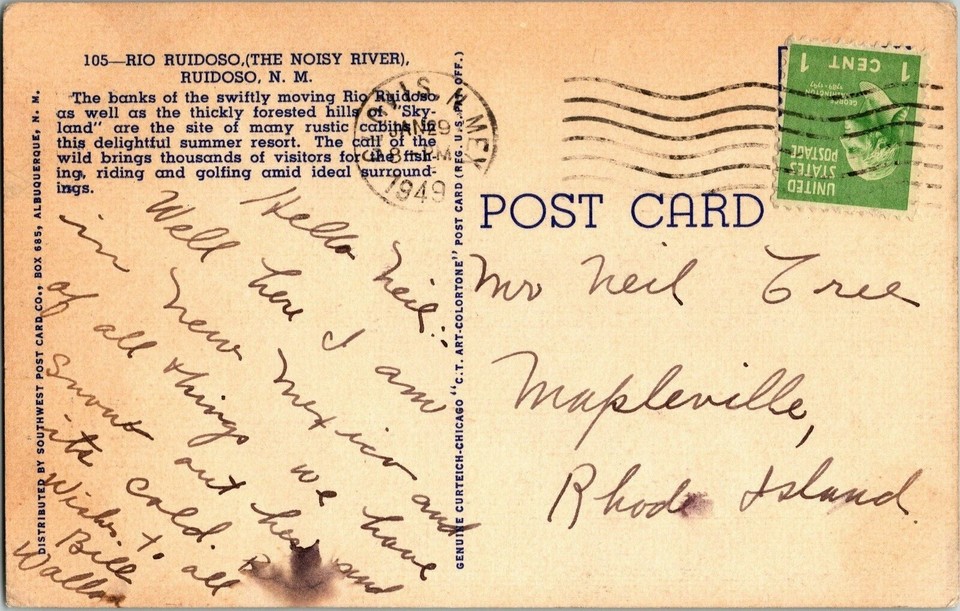 105—RIO RUIDOSO,(THE NOISY RIVER),
RUIDOSO, N. M.
The banks of the swiftly moving Rio Ruidoso
as well as the thickly forested hills of "Sky-
land" are the site of many rustic cabins in
this delightful summer resort. The call of the
wild brings thousands of visitors for the fish-
ing, riding and golfing amid ideal surround-
ings.
Hello Neil:
Well here I am
in New Mexico and
of all things we have
snow out here and
its cold.
Wishes to all
Bill
DISTRIBUTED BY SOUTHWEST POST CARD CO., BOX 685, ALBUQUERQUE, N. M.
GENUINE CURTEICH-CHICAGO "C.T. ART-COLORTONE" POST CARD (REG. U.S. PAT. OFF.)
N. MEX
JAN 29
1949
1 CENT 1
GEORGE WASHINGTON
1789-1797
UNITED
STATES
POSTAGE
POST CARD
Mr Neil Tree
Mapleville,
Rhode Island.